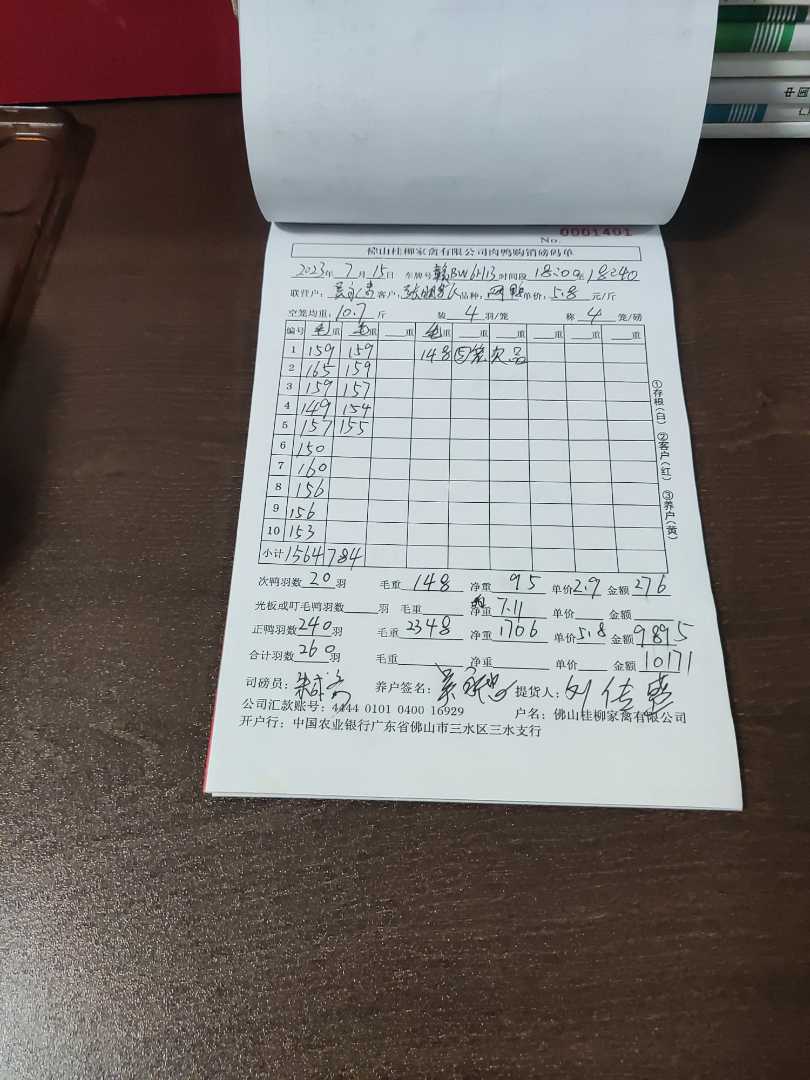 中国
No. 0001401
佛山桂柳家禽有限公司肉鸭购销磅码单
2023年 7 月 15日 车牌号 赣BW6H13 时间段 18:20 至 18:40
联营户: 客户: 品种: 单价: 5.8 元/斤
空笼均重: 10.7 斤 装 4 羽/笼 称 4 笼/磅
编号 毛重 毛重 重 毛重 重 重 重 重 重
1 159 159 148 ⑤笼次品
2 165 159
3 159 157
4 149 154
5 157 155
6 150
7 160
8 156
9 156
10 153
小计 1564 784
①存根(白) ②客户(红) ③养户(黄)
次鸭羽数 20 羽 毛重 148 净重 95 单价 2.9 金额 276
光板或叮毛鸭羽数 羽 毛重 净重 7.11 单价 金额
正鸭羽数 240 羽 毛重 2348 净重 1706 单价 5.8 金额 9895
合计羽数 260 羽 毛重 净重 单价 金额 10171
司磅员: 养户签名: 提货人:
公司汇款账号: 4444 0101 0400 16929 户名: 佛山桂柳家禽有限公司
开户行: 中国农业银行广东省佛山市三水区三水支行